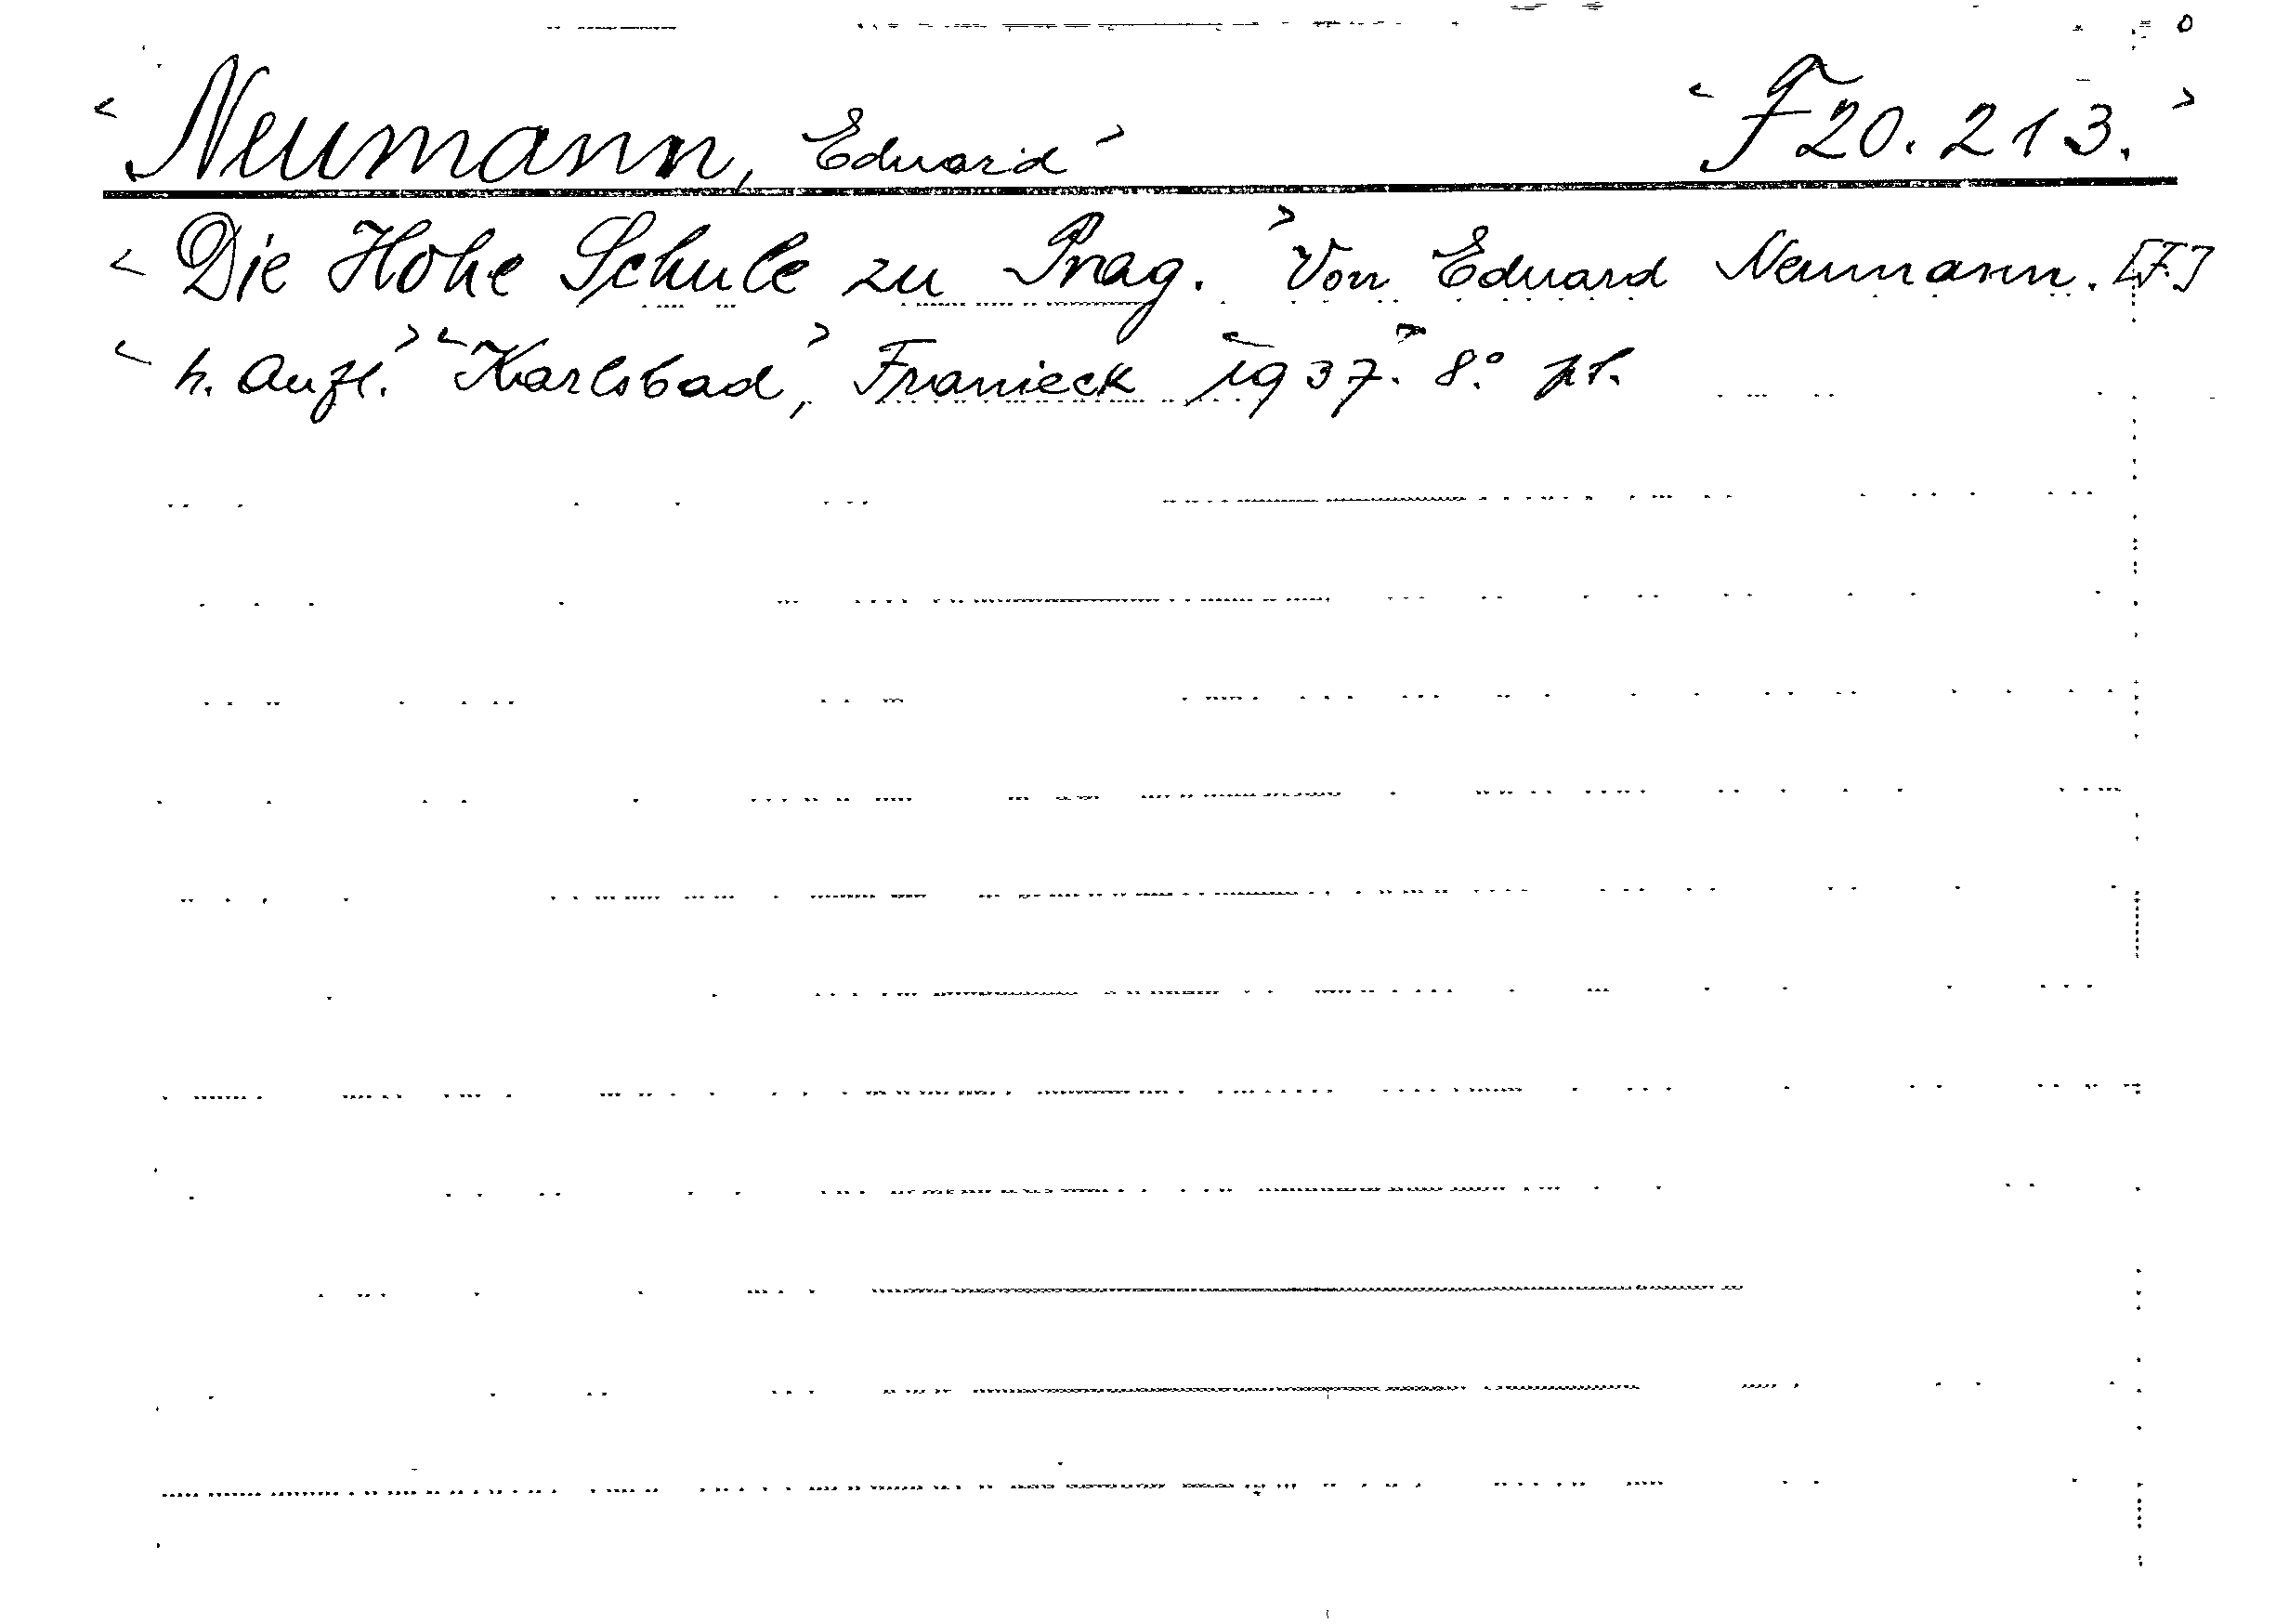 < Neumann, Eduard > < F 20.213. >
< Die Hohe Schule zu Prag. > Von Eduard Neumann. [F.]
< h. Aufl. > < Karlsbad, > Franieck < 1937. > 8.° pl.